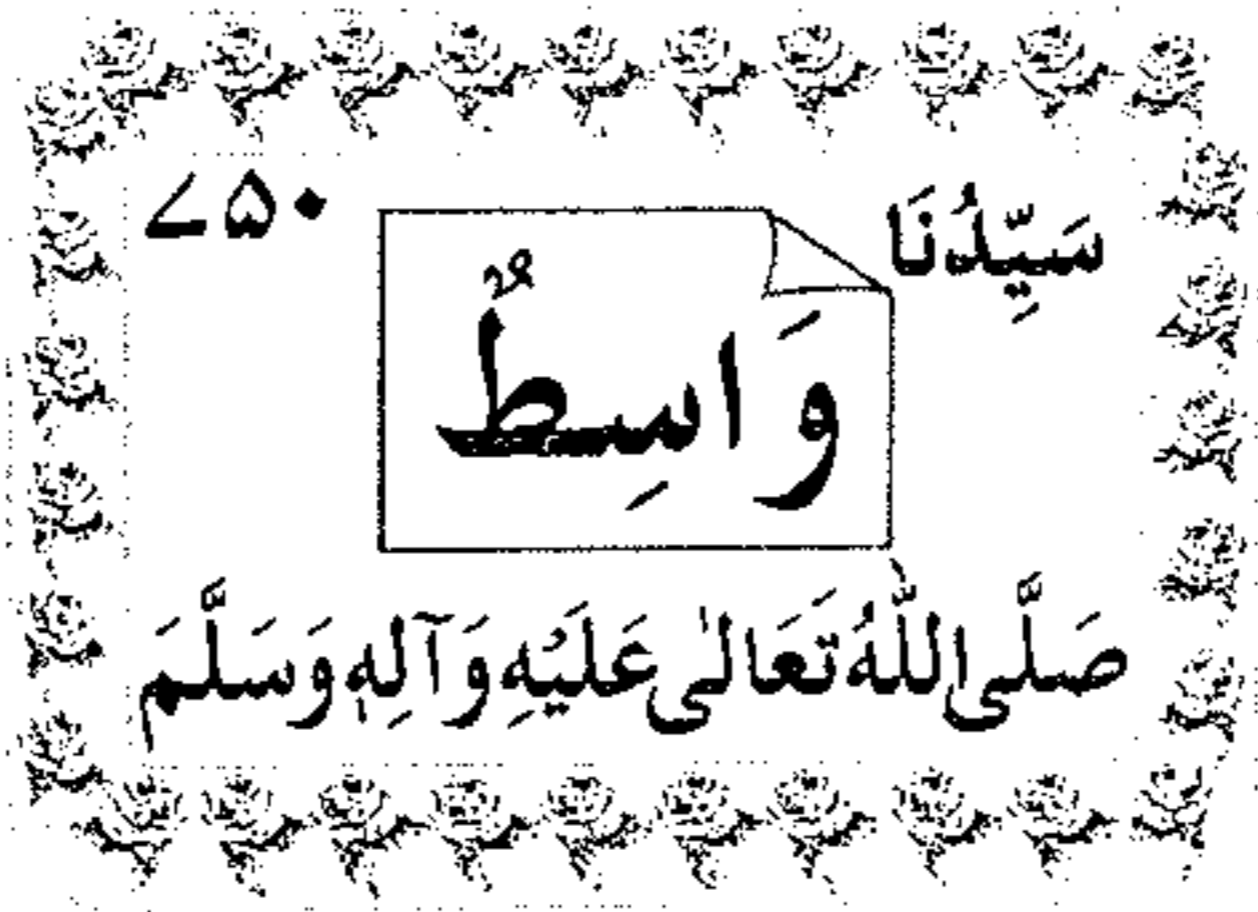 سَيِّدُنَا ۷۵۰
وَاسِطٌ
صَلَّى اللّٰهُ تَعَالٰى عَلَيْهِ وَآلِهٖ وَسَلَّمَ